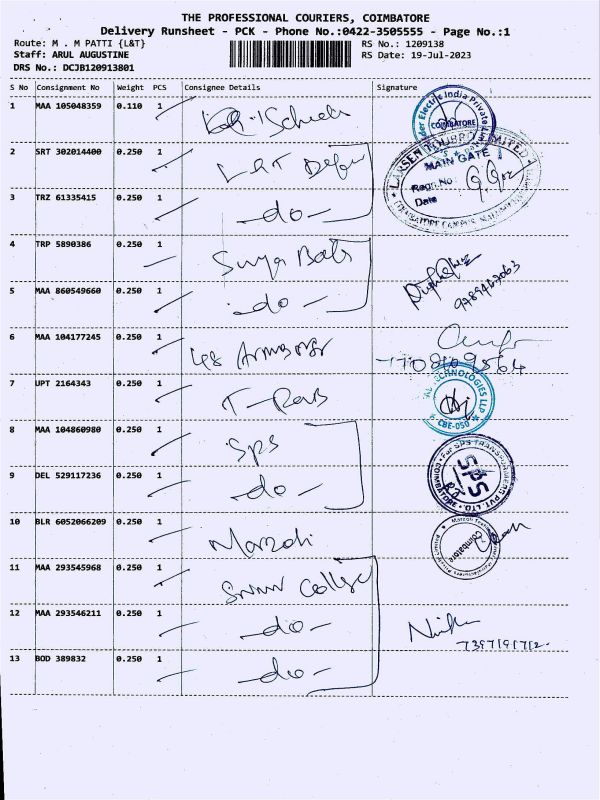 THE PROFESSIONAL COURIERS, COIMBATORE
Delivery Runsheet - PCK - Phone No.:0422-3505555 - Page No.:1
Route: M . M PATTI {L&T}
Staff: ARUL AUGUSTINE
DRS No.: DCJB120913801
RS No.: 1209138
RS Date: 19-Jul-2023
S No Consignment No Weight PCS Consignee Details Signature
1 MAA 105048359 0.110 1
2 SRT 302014400 0.250 1 L&T Defen
3 TRZ 61335415 0.250 1 -do-
4 TRP 5890386 0.250 1 Surya Bats
5 MAA 860549660 0.250 1 -do-
6 MAA 104177245 0.250 1
7 UPT 2164343 0.250 1
8 MAA 104860980 0.250 1 Sps
9 DEL 529117236 0.250 1 -do-
10 BLR 6052066209 0.250 1 Marzoli
11 MAA 293545968 0.250 1 College
12 MAA 293546211 0.250 1 -do-
13 BOD 389832 0.250 1 -do-
Electric India Private
COIMBATORE
LARSEN & TOUBRO LIMITED
MAIN GATE
Regn.No
Date
TECHNOLOGIES LLP
CBE-050
For SPS TRANSFORMERS PVT. LTD.
SPS
COIMBATORE
Marzoli
Coimbatore
7397191712